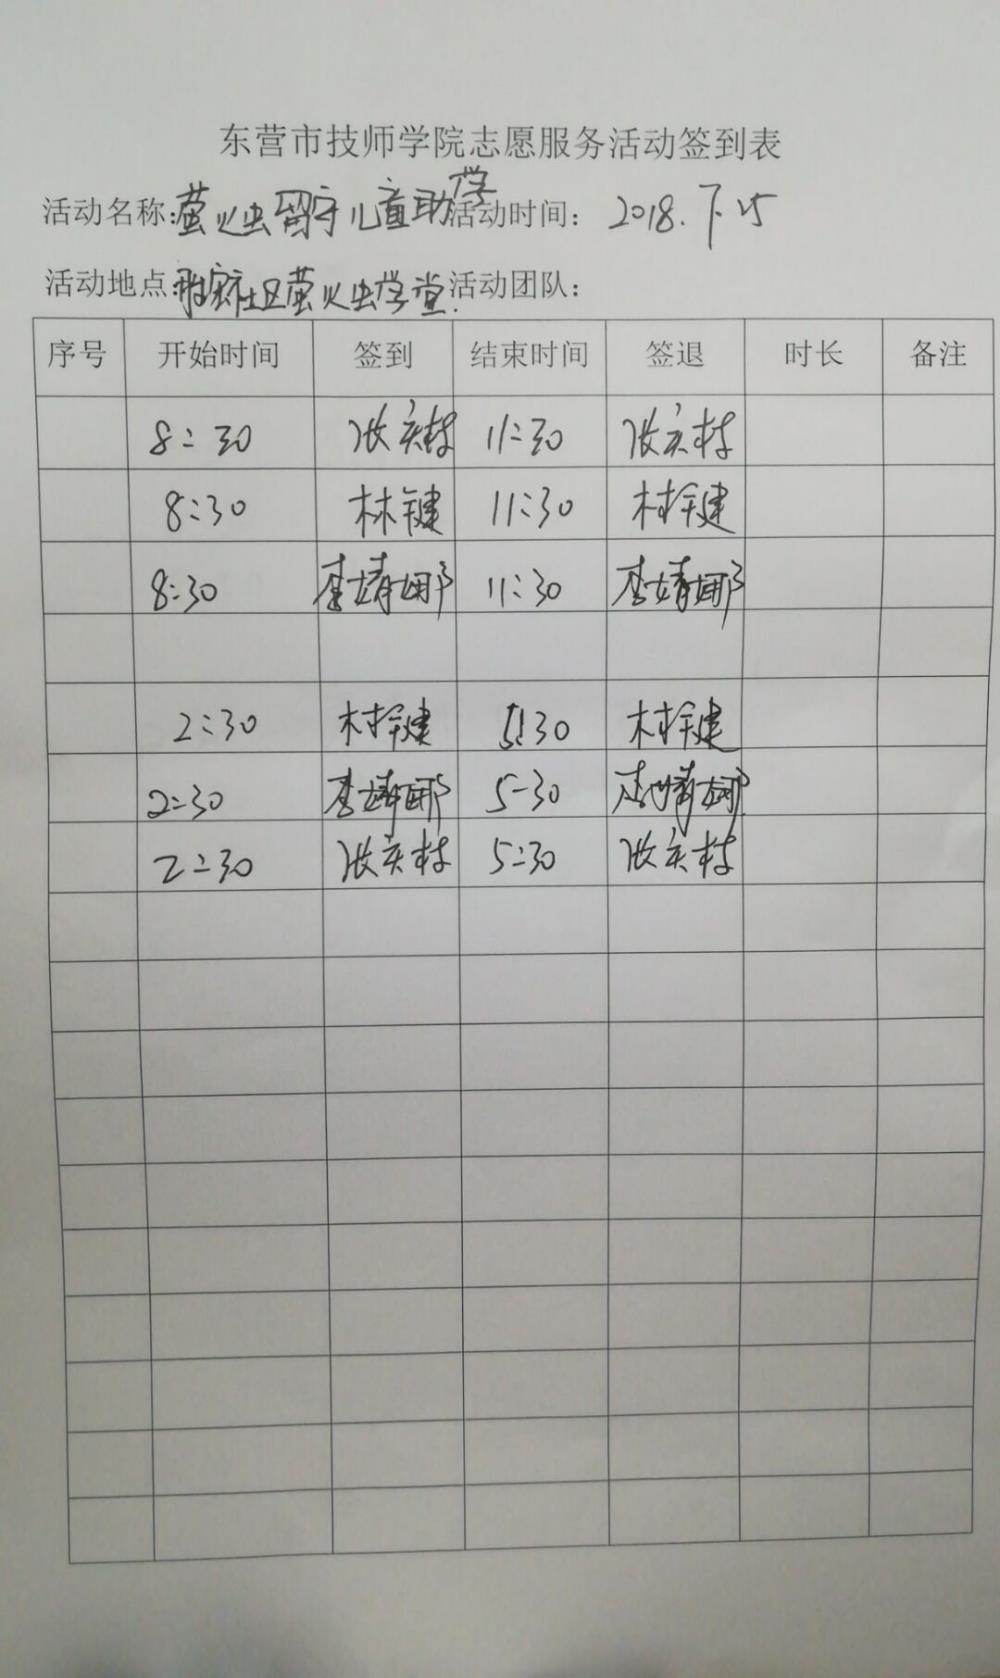 东营市技师学院志愿服务活动签到表
活动名称:萤火虫留守儿童助学 活动时间: 2018.7.25
活动地点:社区萤火虫学堂. 活动团队:
序号 开始时间 签到 结束时间 签退 时长 备注
8:30 张庆村 11:30 张庆村
8:30 林键 11:30 林键
8:30 李婧娜 11:30 李婧娜
2:30 林键 5:30 林键
2:30 李婧娜 5:30 李婧娜
2:30 张庆村 5:30 张庆村